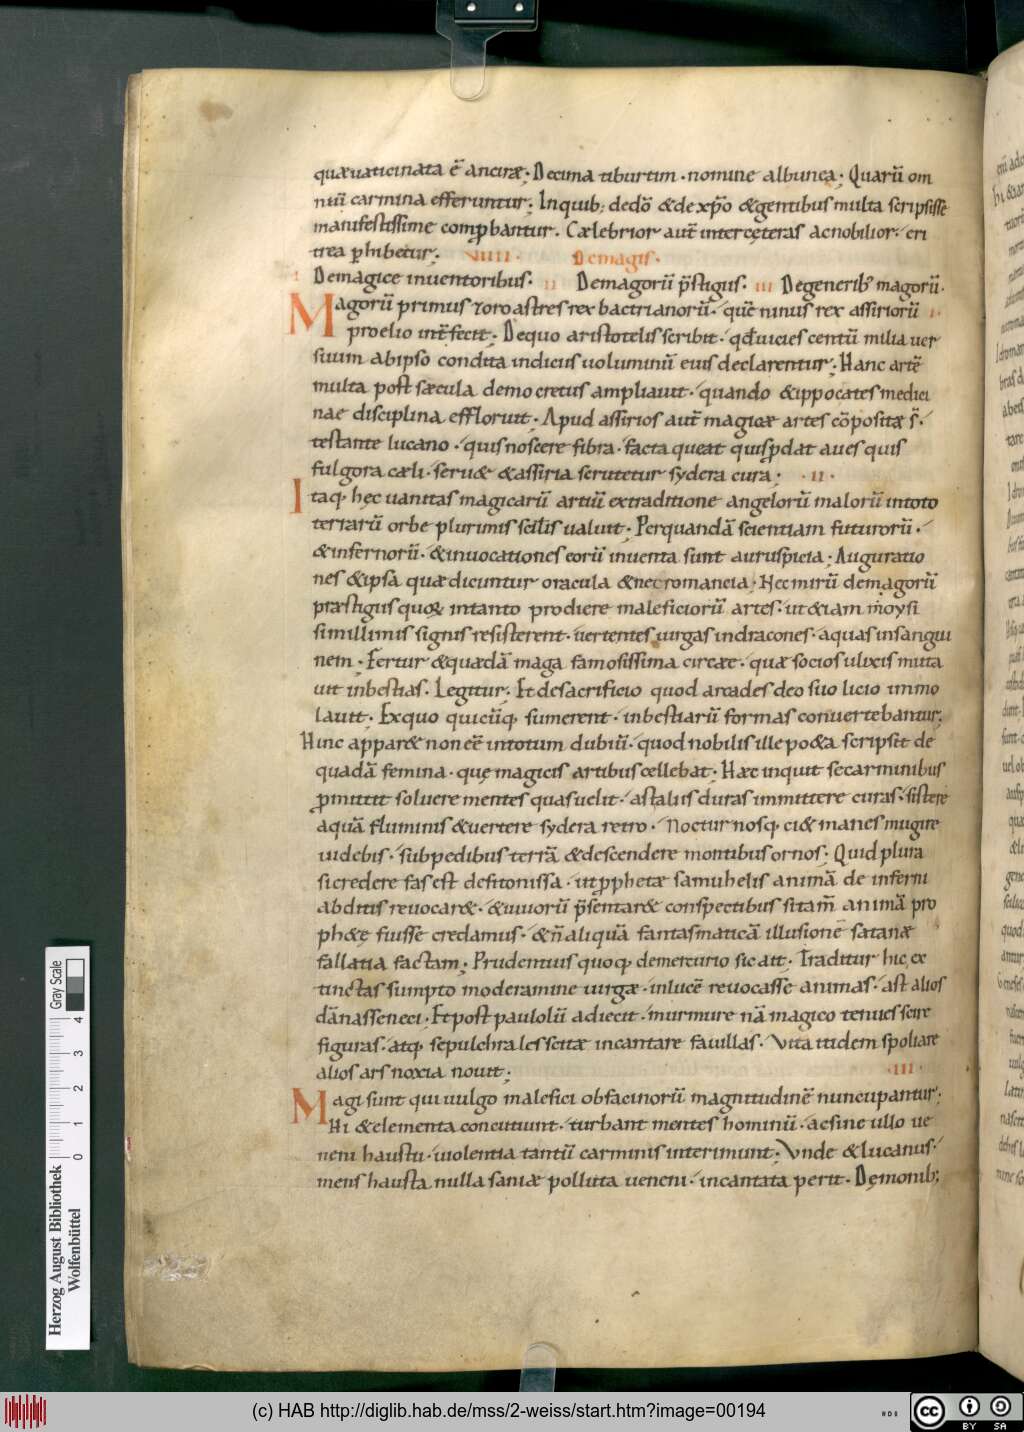 quæuaticinata ē ancyræ; Decima tiburtim · nomine albunea; Quarū om
niū carmina efferuntur; Inquib; dedō & de xp̄o & gentibus multa scripsisse
manifestissime comp̱bantur. Cælebrior aut̄ inter cęteras ac nobilior· eri
trea p̱hibetur; VIIII · Demagis·
I Demagice inuentoribus· II Demagorū p̄stigiis· III Degenerib; magorū·
Magorū primus zoroastres rex bactrianorū· quē ninus rex assiriorū I·
proelio int̄fecit; Dequo aristotelis scribit· qđ uicies centū milia uer
suum ab ipso condita indiciis uoluminū eius declarentur; Hanc artē
multa post sæcula democretus ampliauit· quando & ippocates medici
nae disciplina effloruit; Apud assirios aut̄ magicæ artes cōpositæ s̄·
testante lucano· quis noscere fibra· facta queat quis p̱dat aues quis
fulgora cæli· seruæ & assiria scrutetur sydera cura; · II ·
Itaq· hęc uanitas magicarū artiū ex traditione angelorū malorū in toto
terrarū orbe plurimis sc̄lis ualuit; Per quandā scientiam futurorū·
& infernorū· & inuocationes eorū inuenta sunt auruspicia· Auguratio
nes & ipsa quæ dicuntur oracula & necromancia; Nec mirū de magorū
præstigiis quoꝝ in tanto prodiere maleficiorū artes· ut & iam moysi
simillimis signis resisterent· uertentes uirgas in dracones· aquas in sangui
nem; Fertur & quædā maga famosissima circæ· quæ socios ulixis muta
uit in bestias· Legitur; Et de sacrificio quod arcades deo suo licio immo
lauit· Ex quo quicūq· sumerent· in bestiarū formas conuertebantur;
Hinc appar& non eē in totum dubiū· quod nobilis ille po&a scripsit de
quadā femina· quę magicis artibus cellebat; Hæc inquit se carminibus
p̱mittit soluere mentes quas uelit· ast aliis duras immittere curas· sistere
aquā fluminis & uertere sydera retro· Nocturnosq· ci& manes mugire
uidebis· sub pedibus terrā & descendere montibus ornos; Quid plura
si credere fas est de fitonissa· ut p̱phetæ samuhelis animā de inferni
abditis reuocar&· & uiuorū p̄sentar& conspectibus si tam̄ animā pro
ph&ę fuisse credamus· & n̄ aliquā fantasmaticā illusionē satanæ
fallatia factam; Prudentius quoq· de mercurio sic ait· Traditur hic ex
tinctas sumpto moderamine uirgæ· in lucē reuocasse animas· ast alios
dānasse neci· Et post paulolū adiecit· murmure nā magico tenues scire
figuras· atq· sepulchrales scitæ incantare fauillas· Vita itidem spoliare
alios ars noxia nouit; · III ·
Magi sunt qui uulgo malefici ob facinorū magnitudinē nuncupantur;
Hi & elementa concutiunt· turbant mentes hominū· ac sine ullo ue
neni haustu· uiolentia tantū carminis interimunt; Vnde & lucanus·
mens hausta nulla saniæ pollita ueneni· incantata perit· Dęmonib;
Gray Scale
0 1 2 3 4
Herzog August Bibliothek
Wolfenbüttel
(c) HAB http://diglib.hab.de/mss/2-weiss/start.htm?image=00194
HDB
cc BY SA